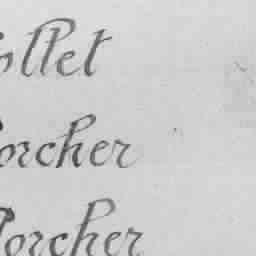 ollet
orcher
Porcher